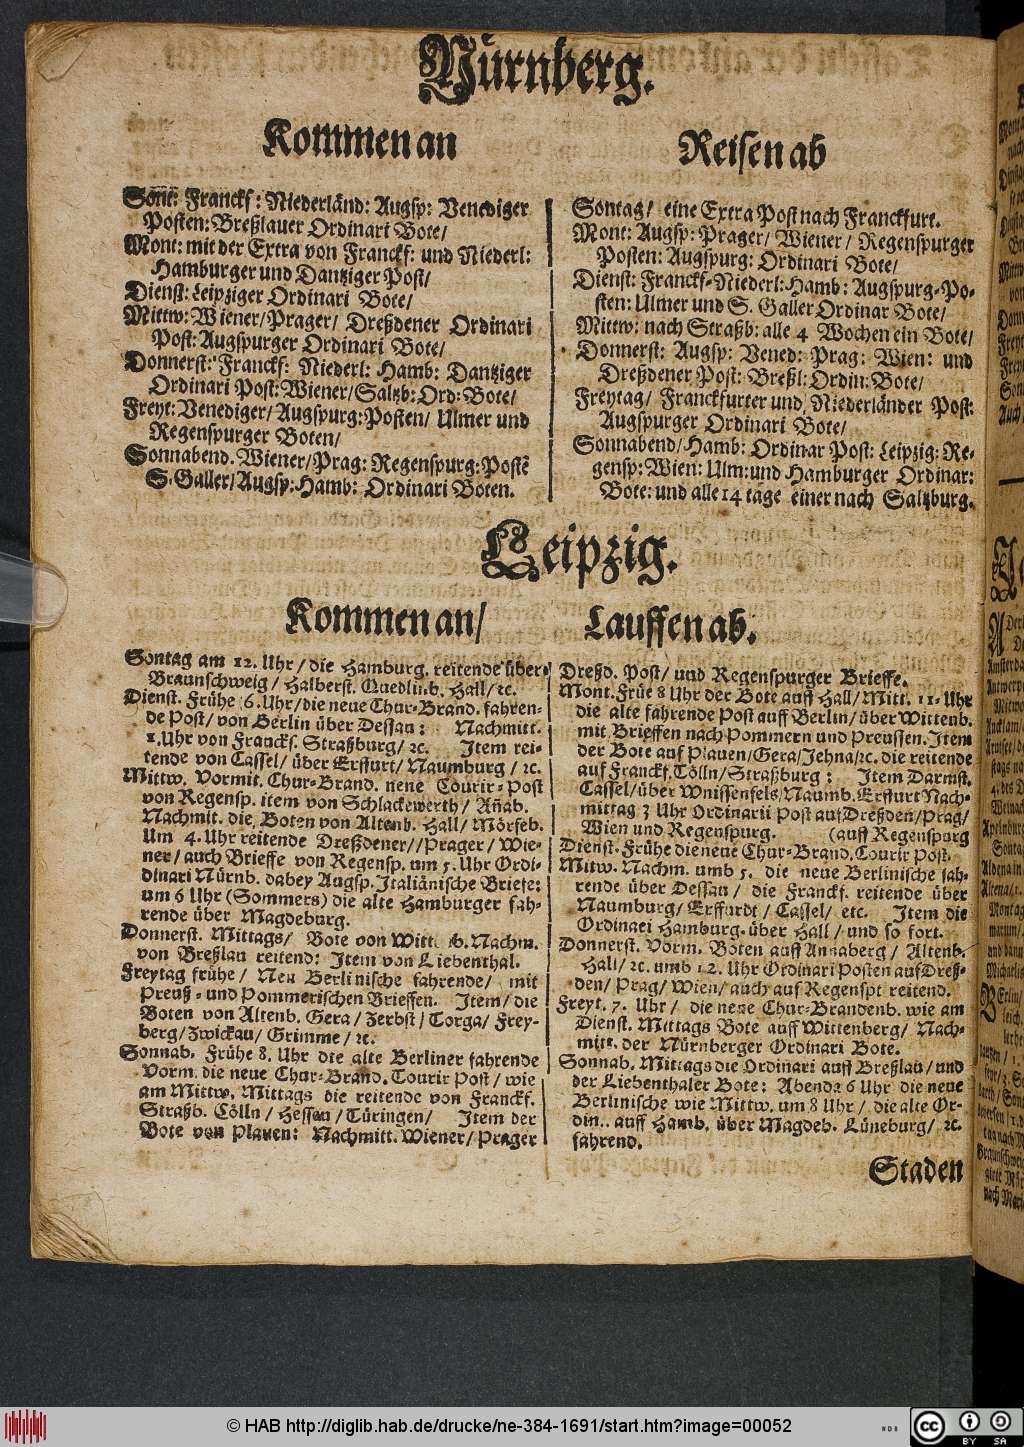 Nürnberg.
Kommen an
Soñt: Franckf: Niederländ: Augsp: Venediger
Posten: Breßlauer Ordinari Bote/
Mont: mit der Extra von Franckf: und Niederl:
Hamburger und Dantziger Post/
Dienst: Leipziger Ordinari Bote/
Mittw: Wiener/ Prager/ Dreßdener Ordinari
Post: Augspurger Ordinari Bote/
Donnerst: Franckf: Niederl: Hamb: Dantziger
Ordinari Post: Wiener/ Saltzb: Ord: Bote/
Freyt: Venediger/ Augspurg: Posten/ Ulmer und
Regenspurger Boten/
Sonnabend. Wiener/ Prag: Regenspurg: Postẽ
S. Galler/ Augsp: Hamb: Ordinari Boten.
Reisen ab
Sontag/ eine Extra Post nach Franckfurt.
Mont: Augsp: Prager/ Wiener/ Regenspurger
Posten: Augspurg: Ordinari Bote/
Dienst: Franckf-Niederl: Hamb: Augspurg-Po-
sten: Ulmer und S. Galler Ordinar Bote/
Mittw: nach Straßb: alle 4 Wochen ein Bote/
Donnerst: Augsp: Vened: Prag: Wien: und
Dreßdener Post: Breßl: Ordin: Bote/
Freytag/ Franckfurter und Niederländer Post:
Augspurger Ordinari Bote/
Sonnabend/ Hamb: Ordinar Post: Leipzig: Re-
gensp: Wien: Ulm: und Hamburger Ordinar:
Bote: und alle 14 tage einer nach Saltzburg.
Leipzig.
Kommen an/
Sontag am 12. Uhr/ die Hamburg. reitende über
Braunschweig/ Halberst. Quedlinb. Hall/ ꝛc.
Dienst. Frühe 6. Uhr/ die neue Chur-Brand. fahren-
de Post/ von Berlin über Dessau: Nachmitt.
1. Uhr von Franckf. Straßburg/ ꝛc. Item rei-
tende von Cassel/ über Erffurt/ Naumburg/ ꝛc.
Mittw. Vormit. Chur-Brand. neue Courir-Post
von Regensp. item von Schlackewerth/ Añab.
Nachmit. die Boten von Altenb. Hall/ Mörseb.
Um 4. Uhr reitende Dreßdener// Prager/ Wie-
ner/ auch Brieffe von Regensp. um 5. Uhr Ordi-
dinari Nürnb. dabey Augsp. Italiänische Briefe:
um 6 Uhr (Sommers) die alte Hamburger fah-
rende über Magdeburg.
Donnerst. Mittags/ Bote von Witt. 6. Nachm.
von Breßlau reitend: Item von Liebenthal.
Freytag frühe/ Neu Berlinische fahrende/ mit
Preuß- und Pommerischen Brieffen. Item/ die
Boten von Altenb. Gera/ Zerbst/ Torga/ Frey-
berg/ Zwickau/ Grimme/ ꝛc.
Sonnab. Frühe 8. Uhr die alte Berliner fahrende
Vorm. die neue Chur-Brand. Courir Post/ wie
am Mittw. Mittags die reitende von Franckf.
Straßb. Cölln/ Hessen/ Türingen/ Item der
Bote von Plauen: Nachmitt. Wiener/ Prager
Lauffen ab.
Dreßd. Post/ und Regenspurger Brieffe.
Mont. Früe 8 Uhr der Bote auff Hall/ Mitt. 11-Uhr
die alte fahrende Post auff Berlin/ über Wittenb.
mit Brieffen nach Pommern und Preussen. Item
der Bote auf Plauen/ Gera/ Jehna/ꝛc. die reitende
auf Franckf. Cölln/ Straßburg: Item Darmst.
Cassel/ über Wnissenfels/ Naumb. Erffurt Nach-
mittag 3 Uhr Ordinarii Post auf Dreßden/ Prag/
Wien und Regenspurg. (auff Regenspurg
Dienst. Frühe die neue Chur-Brand. Courir Post.
Mitw. Nachm. umb 5. die neue Berlinische fah-
rende über Dessau/ die Franckf. reitende über
Naumburg/ Erffurdt/ Cassel/ etc. Item die
Ordinaei Hamburg. über Hall/ und so fort.
Donnerst. Vorm. Boten auff Annaberg/ Altenb.
Hall/ ꝛc. umb 12. Uhr Ordinari Posten auf Dreß-
den/ Prag/ Wien/ auch auf Regenspt reitend.
Freyt. 7. Uhr/ die neue Chur-Brandenb. wie am
Dienst. Mittags Bote auff Wittenberg/ Nach-
mitt. der Nürnberger Ordinari Bote.
Sonnab. Mittags die Ordinari auff Breßlau/ und
der Liebenthaler Bote: Abends 6 Uhr die neue
Berlinische wie Mittw. um 8 Uhr/ die alte Or-
din.. auff Hamb. über Magdeb. Lüneburg/ ꝛc.
fahrend.
Staden
© HAB http://diglib.hab.de/drucke/ne-384-1691/start.htm?image=00052
cc BY SA